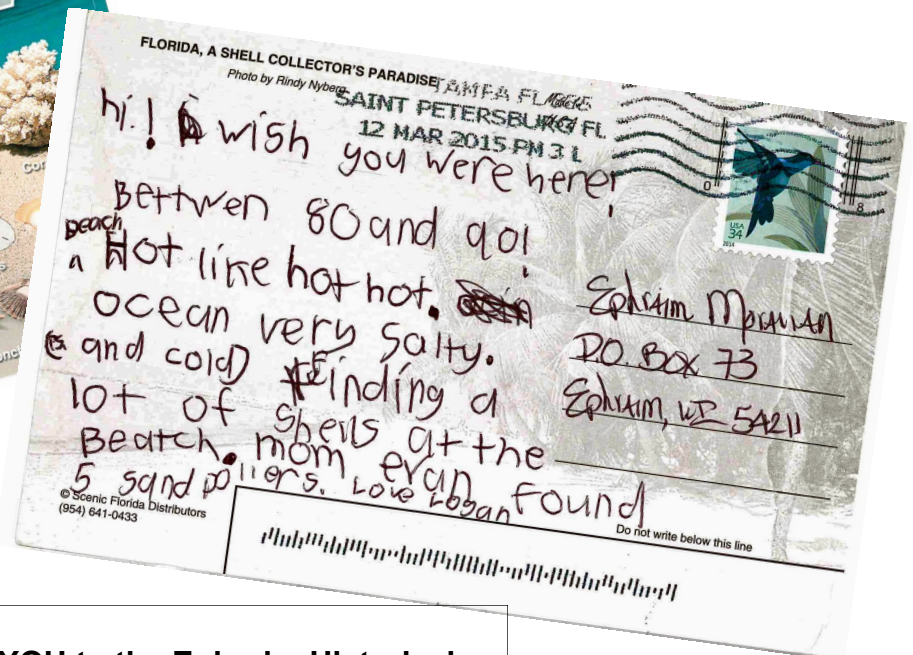 FLORIDA, A SHELL COLLECTOR'S PARADISE
Photo by Rindy Nyberg
TAMPA FL
SAINT PETERSBURG FL
12 MAR 2015 PM 3 L
hi! wish
you were here!
Bettwen 80 and 90!
beach
a Hot like hot hot.
ocean very salty.
and cold Finding a
lot of shells at the
Beatch. mom evan found
5 sand dollers. Love Logan
USA
34
2014
Ephraim Moravian
P.O. Box 73
Ephraim, WI 54211
© Scenic Florida Distributors
(954) 641-0433
Do not write below this line